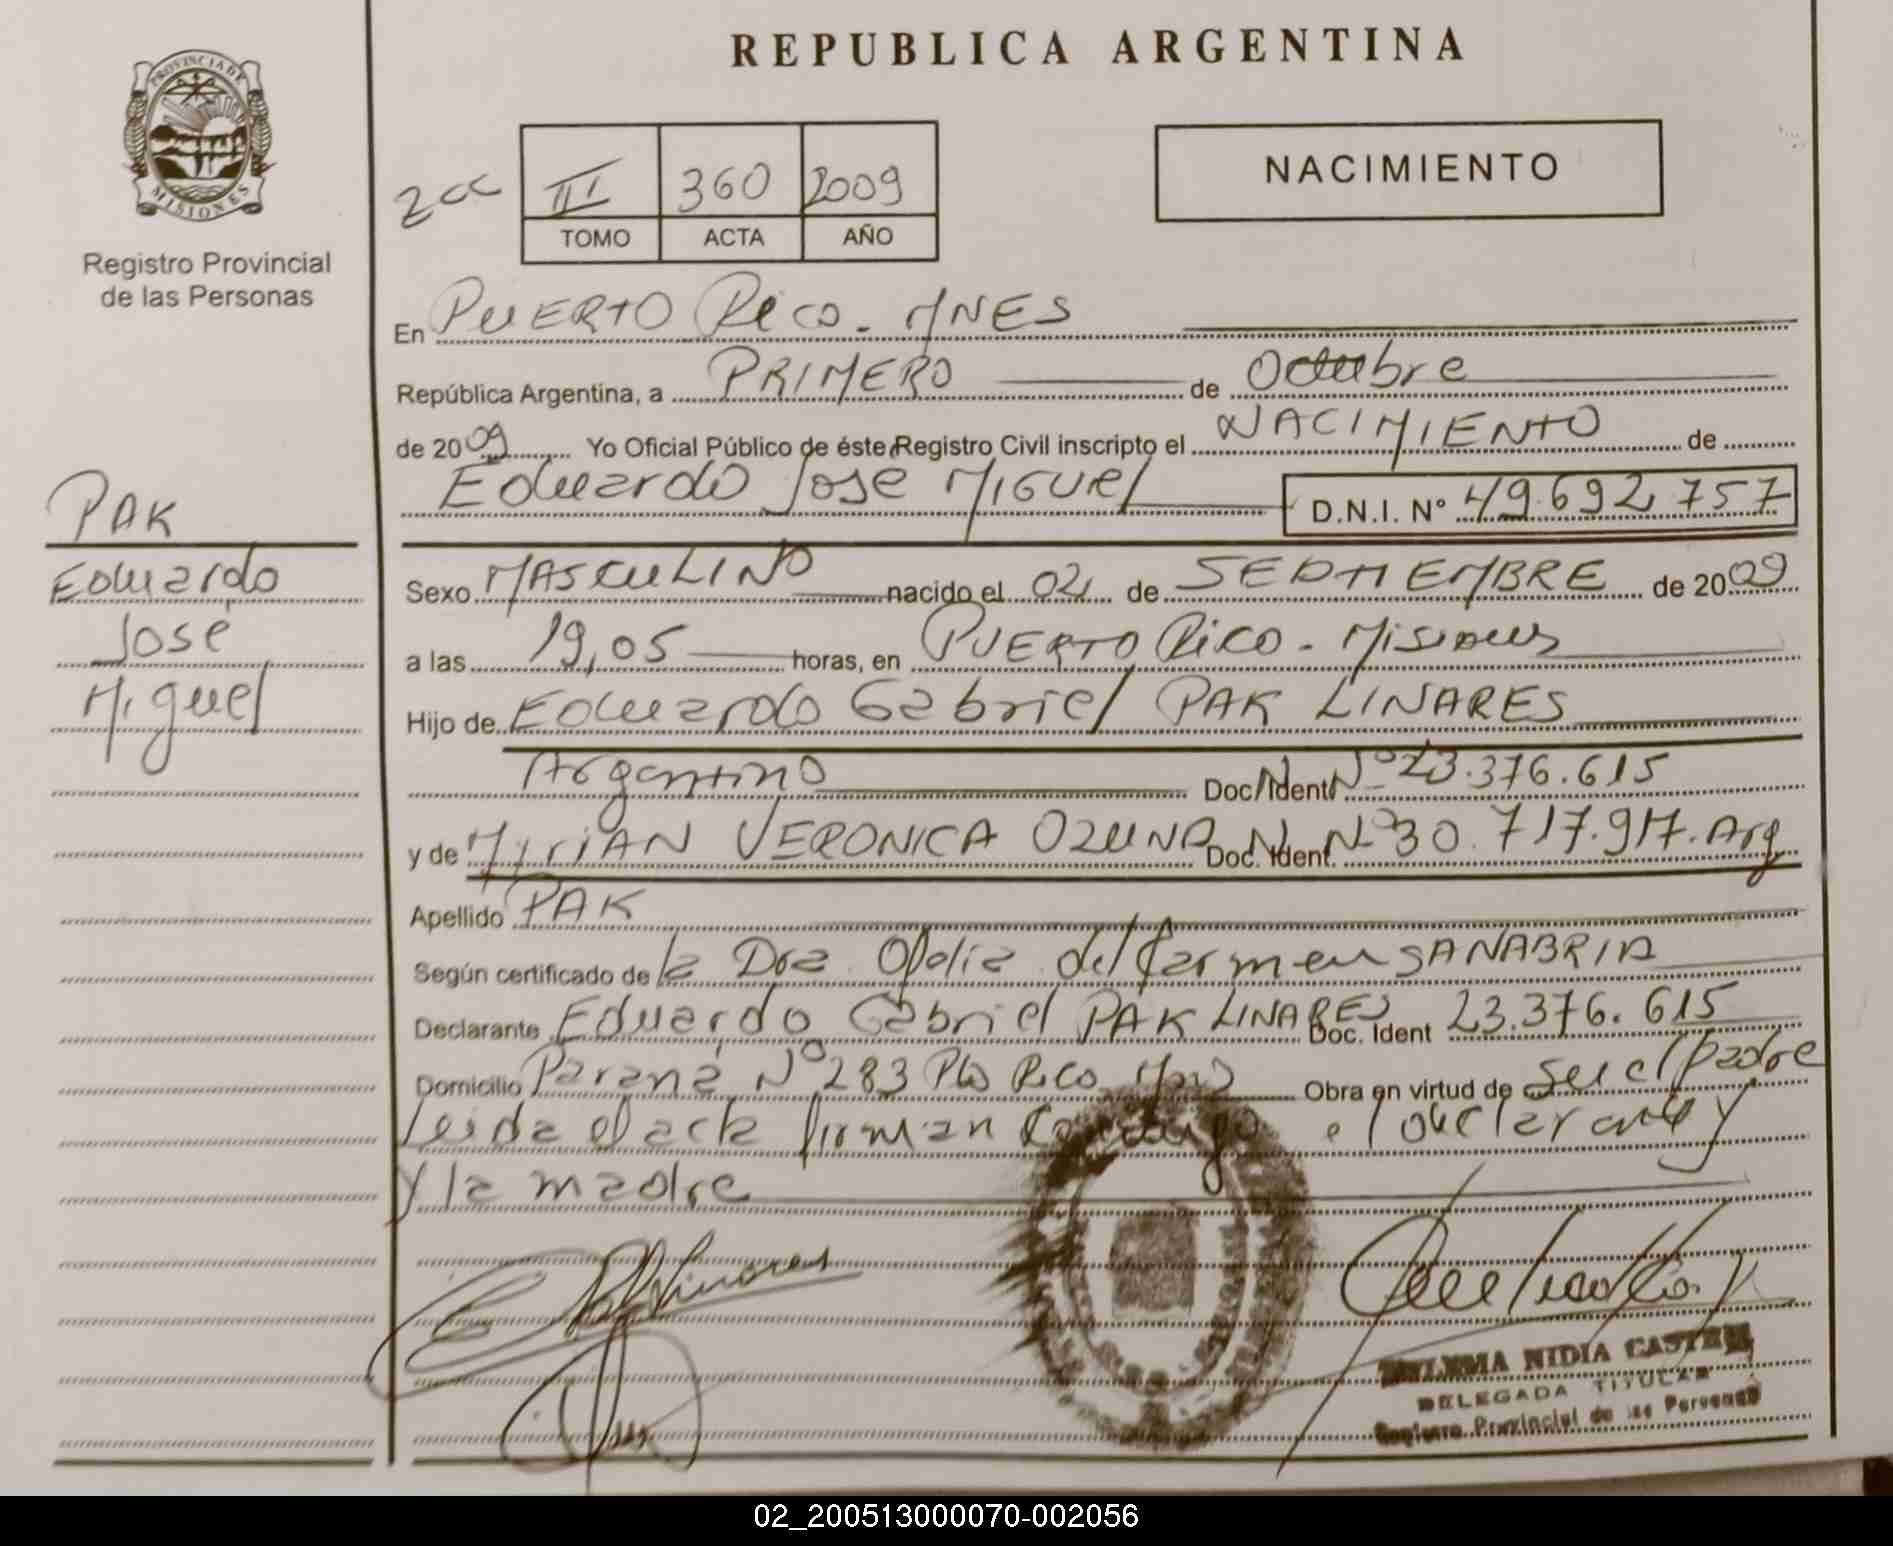 REPUBLICA ARGENTINA
PROVINCIA DE
MISIONES
Registro Provincial
de las Personas
III 360 2009
TOMO ACTA AÑO
NACIMIENTO
En PUERTO Rico - MNES
República Argentina, a PRIMERO de Octubre
de 2009 Yo Oficial Público de éste Registro Civil inscripto el NACIMIENTO de
Eduardo Jose Miguel D.N.I. N° 49.692.757
PAK
Eduardo
José
Miguel
Sexo MASCULINO nacido el 02 de SEPTIEMBRE de 2009
a las 19,05 horas, en PUERTO Rico - Misiones
Hijo de Eduardo Gabriel PAK LINARES
Argentino Doc. Ident. N° 23.376.615
y de MYRIAN VERONICA OZUNA Doc. Ident. N° 30.717.917. Arg
Apellido PAK
Según certificado de la Dra Ofelia del Carmen SANABRIA
Declarante Eduardo Gabriel PAK LINARES Doc. Ident 23.376.615
Domicilio Paraná N° 283 Pto Rico Obra en virtud de ser el padre
Leida el acta firman conmigo el declarante y
y la madre
NIDIA
DELEGADA TITULAR
Registro Provincial de las Personas
02_200513000070-002056